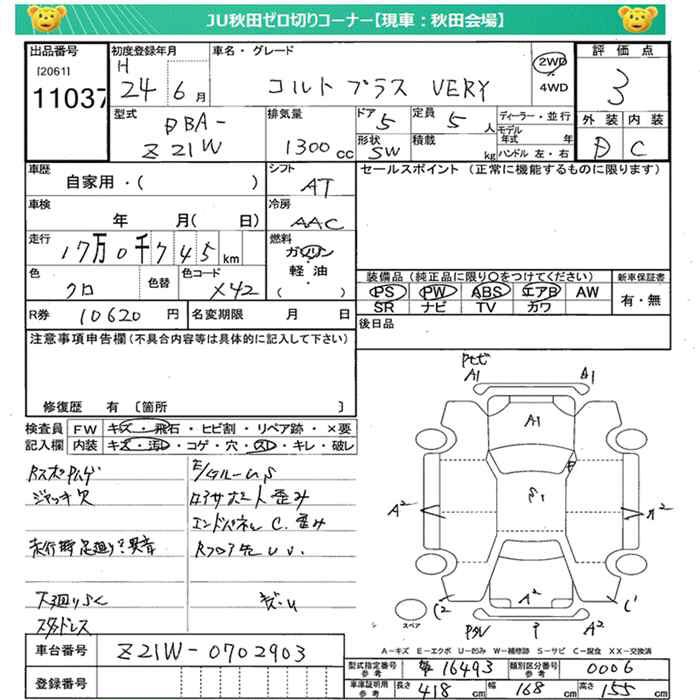 JU秋田ゼロ切りコーナー【現車：秋田会場】
出品番号
[2061]
11037
初度登録年月
H
24 6 月
車名・グレード
コルト プラス VERY
2WD
4WD
評価点
3
外装 内装
D C
型式
DBA-
Z21W
排気量
1300 cc
ドア 5
形状 SW
定員 5 人
積載 kg
ディーラー・並行
モデル年式 年
ハンドル 左・右
車歴
自家用・( )
シフト
AT
セールスポイント (正常に機能するものに限ります)
車検
年 月( 日)
冷房
AAC
走行
17万0千745 km
燃料
ガソリン
軽油
( )
色
クロ
色替
色コード
X42
装備品 (純正品に限り○をつけてください)
PS PW ABS エアB AW
SR ナビ TV カワ
新車保証書
有・無
R券 10620 円
名変期限 月 日
後日品
注意事項申告欄(不具合内容等は具体的に記入して下さい)
修復歴 有 〔箇所 〕
検査員
記入欄
FW キズ・飛石・ヒビ割・リペア跡・×要
内装 キズ・汚レ・コゲ・穴・スレ・キレ・破レ
ジャッキ欠
エンドパネル C. 歪み
下廻りSC
スタッドレス
A1 A1
A1
S1
A2 A2
A2
C2 C1
A2
スペア
A－キズ E－エクボ U－凹み W－補修跡 S－サビ C－腐食 XX－交換済
車台番号 Z21W-0702903
登録番号
型式指定番号 参考 16493
類別区分番号 参考 0006
車庫証明用 参考
長さ 418 cm
幅 168 cm
高さ 155 cm